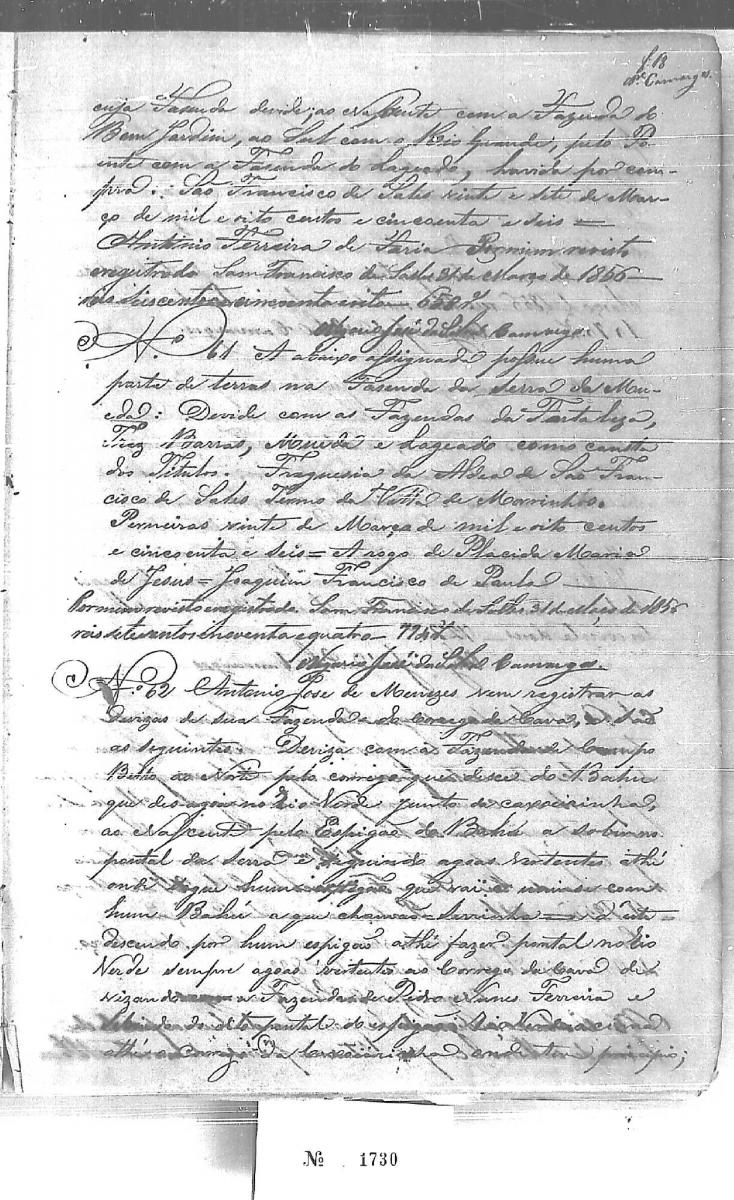 f. 13
Camargos.
cuja Fasenda devide; ao Nascente com a Fazenda do
Bom Jardim, ao Sul com o Rio Grande, pelo Po-
ente com a Fasenda do Lageado, havida por com-
pra. São Francisco de Sales vinte e sete de Mar-
ço de mil e oito centos e cincoenta e seis =
Antonio Ferreira de Faria Por mim revisto
e registrado Sam Francisco de Salles 31 de Março de 1856
reis seiscentos e cincoenta e oito 658 rs
Vigario José da Silva Camargos
N.º 61 A abaixo assignada possue huma
parte de terras na Fasenda da Serra da Mue-
da: Devide com as Fazendas da Fortaleza,
Trez Barras, Mueda e Lageado como consta
dos Titulos. Freguesia da Aldea de São Fran-
cisco de Sales Termo da Villa de Morrinhos.
Perneiras vinte de Março de mil e oito centos
e cincoenta e seis = A rogo de Placida Maria
de Jesus = Joaquim Francisco de Paula
Por mim revisto e registrado. Sam Francisco de Salles 31 de Março de 1856
reis sete centos e noventa e quatro 794 rs
Vigario José da Silva Camargos.
N.º 62 Antonio Jose de Menezes vem registrar as
devizas de sua Fazenda do Corrego da Cava, e são
as seguintes. Deviza com a Fazenda de Campo
Bello ao Norte pelo corrego que desce do Bahu
que desagoa no Rio Verde junto da caxoeirinha,
ao Nascente pelo Espigão do Bahú a sobir no
pontal da serra e seguindo agoas vertentes athé
onde segue hum espigão que vai
hum Bahú a que chamão = Serrinha = e d'esta
descendo por hum espigão athé fazer pontal no Rio
Verde sempre agoas vertentes ao Corrego da Cava de-
vizando a Fazenda de Pedro Nunes Ferreira e
do dito pontal do espigão Rio Verde acima
athé o Corrego da Caxoeirinha onde tem principio;
Nº 1730